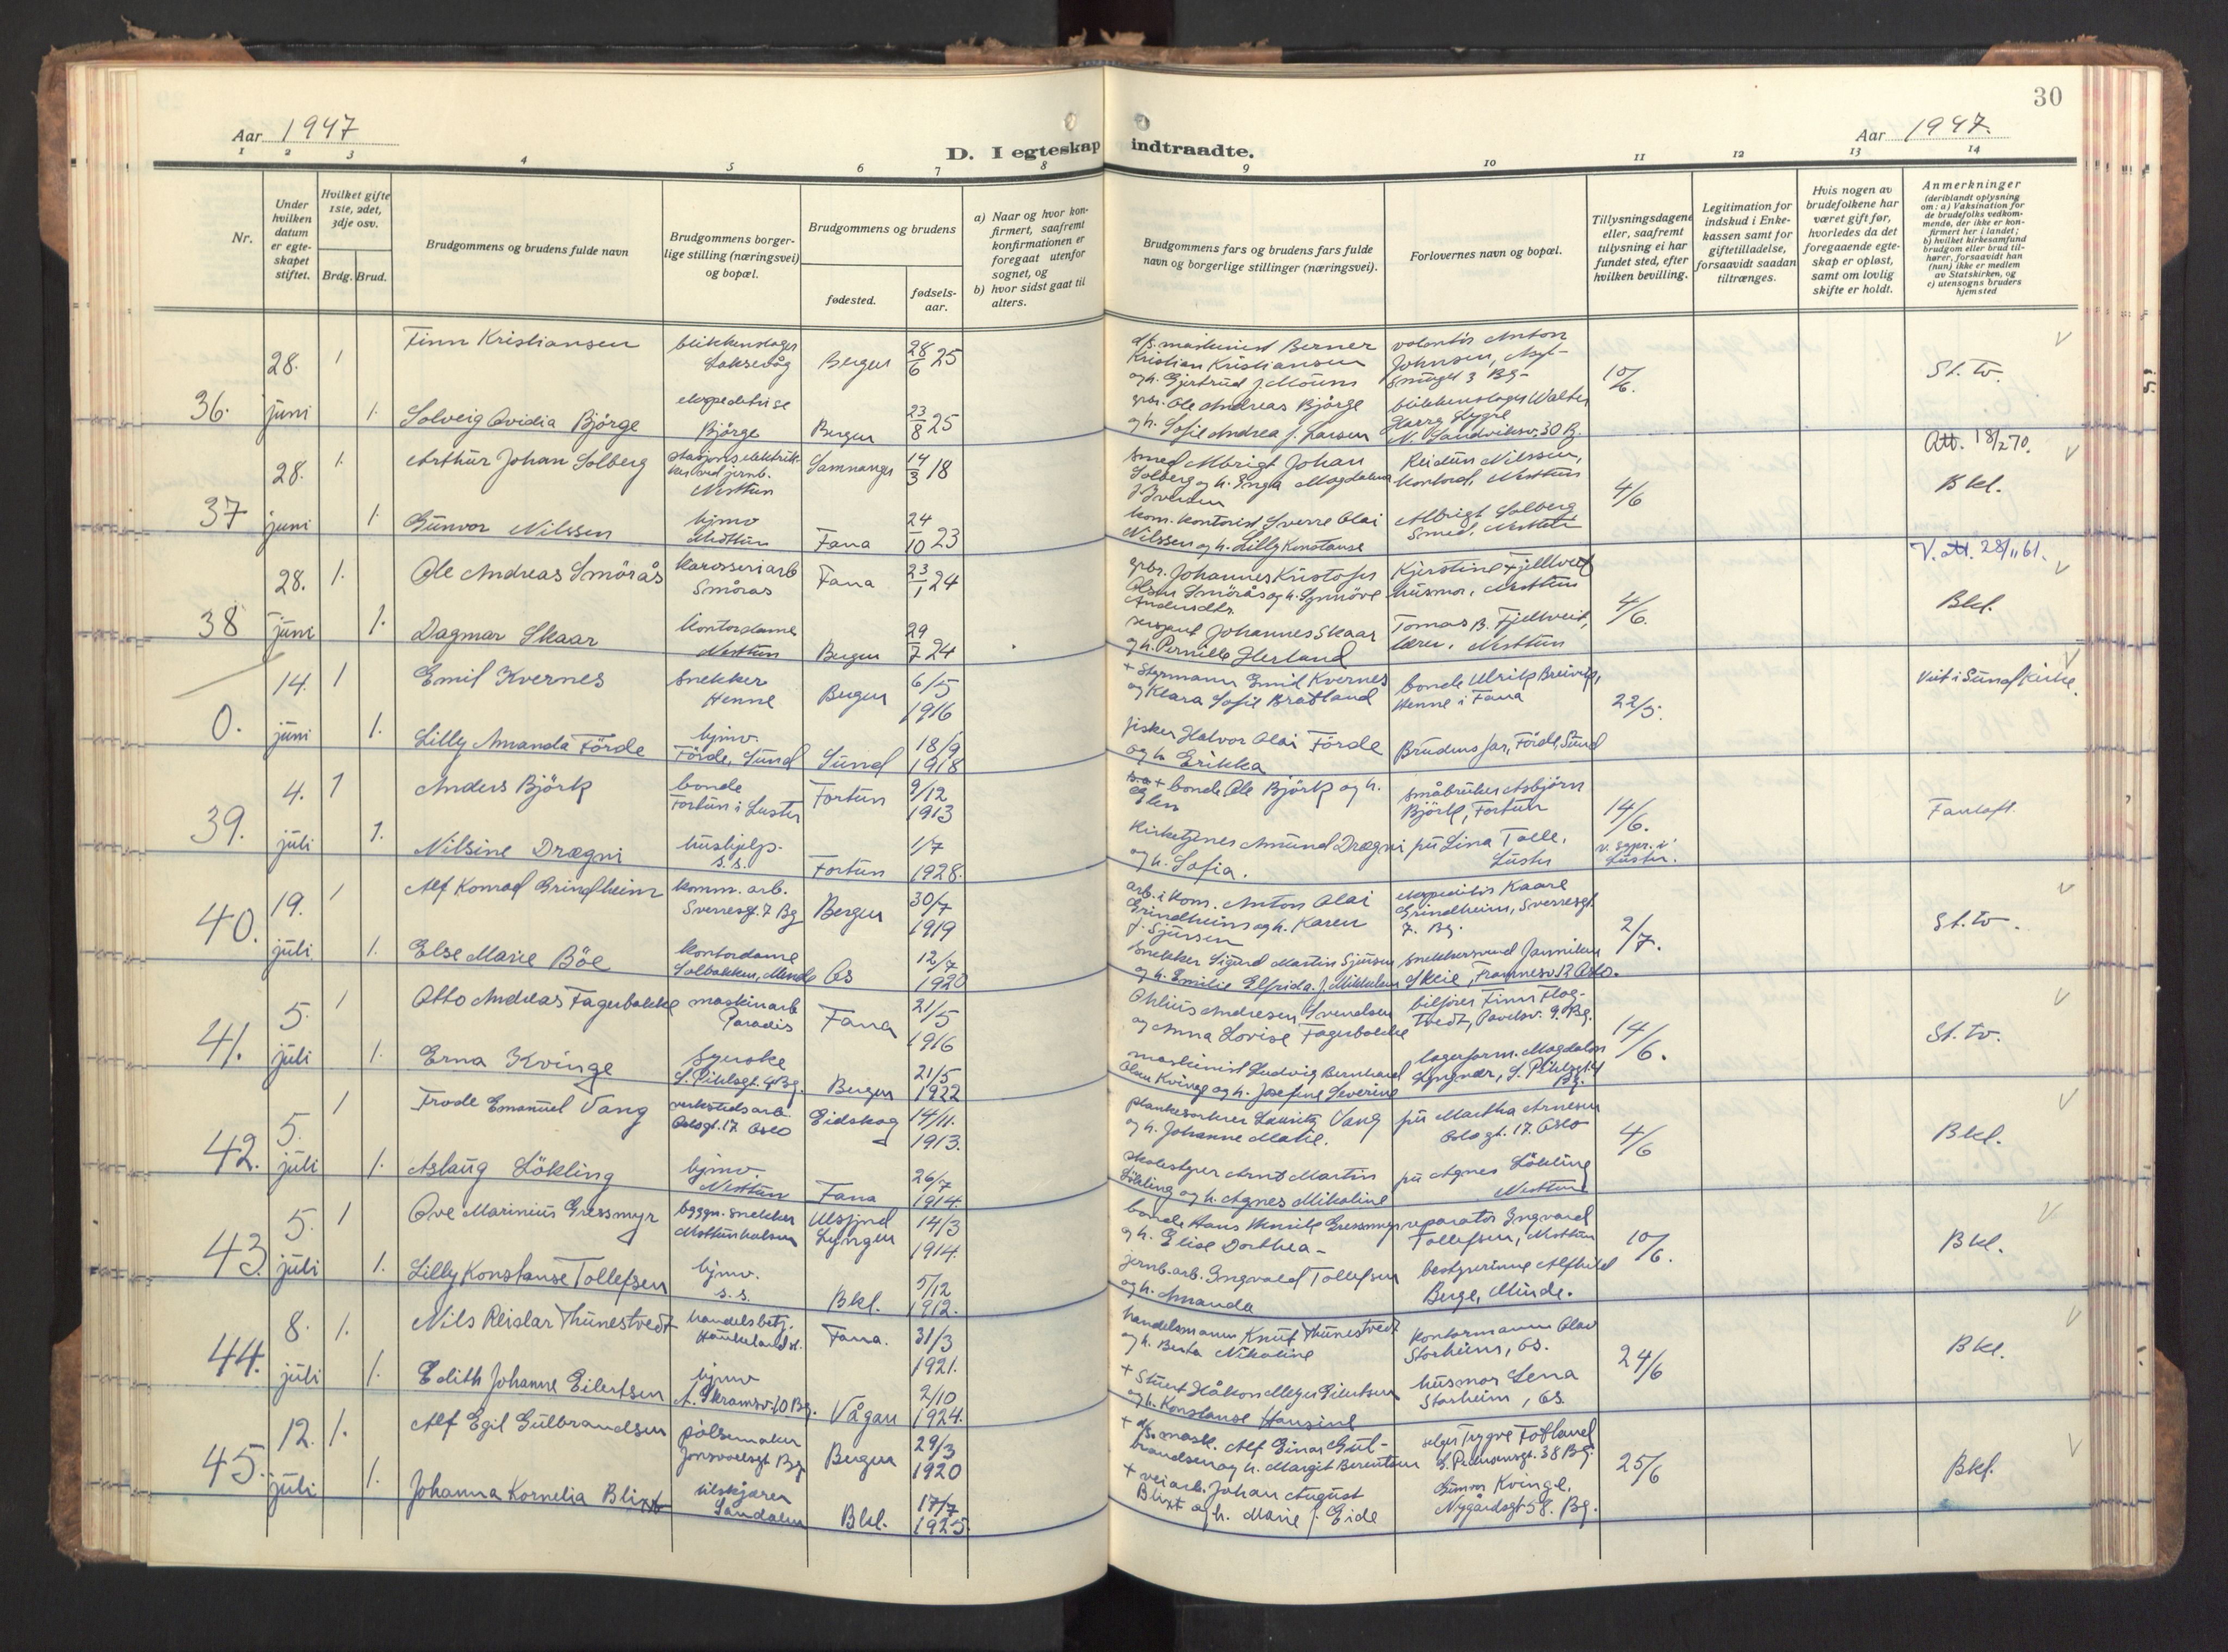 30
Aar 1947
Aar 1947.
D. I egteskap indtraadte.
1 2 3 4 5 6 7 8 9 10 11 12 13 14
Nr.
Under hvilken datum er egte-skapet stiftet.
Hvilket gifte 1ste, 2det, 3dje osv.
Brdg. Brud.
Brudgommens og brudens fulde navn
Brudgommens borger-lige stilling (næringsvei) og bopæl.
Brudgommens og brudens
fødested.
fødsels-aar.
a) Naar og hvor kon-firmert, saafremt konfirmationen er foregaat utenfor sognet, og
b) hvor sidst gaat til alters.
Brudgommens fars og brudens fars fulde navn og borgerlige stillinger (næringsvei).
Forlovernes navn og bopæl.
Tillysningsdagene eller, saafremt tillysning ei har fundet sted, efter hvilken bevilling.
Legitimation for indskud i Enke-kassen samt for giftetilladelse, forsaavidt saadan tiltrænges.
Hvis nogen av brudefolkene har været gift før, hvorledes da det foregaaende egte-skap er opløst, samt om lovlig skifte er holdt.
Anmerkninger (deriblandt oplysning om: a) Vaksination for de brudefolks vedkom-mende, der ikke er kon-firmert her i landet; b) hvilket kirkesamfund brudgom eller brud til-hører, forsaavidt han (hun) ikke er medlem av Statskirken, og c) utensogns bruders hjemsted
36. 28. juni
1 Finn Kristiansen blikkenslager Laksevåg Bergen 28/6 25
d/s. maskinist Berner Kristian Kristiansen og h. Gjertrud f. Mouns
volontör Anton Johnsen, smuget 3 Bg-
10/6.
St. to.
1. Solveig Ovidia Björge ekspeditrise Björge Bergen 23/8 25
grbr. Ole Andreas Björge og h. Sofie Andrea f. Larsen
blikkenslager Walter N. Sandviksv. 30 B.
37 28. juni
1. Arthur Johan Solberg ved jernb. Nesttun Samnanger 14/3 18
smed Albrigt Johan Solberg og h. Inga Magdalena
Reidun Nilssen, kontord, Nesttun
4/6
Att. 18/2 70.
Bkl.
1. Gunvor Nilssen hjmv Nesttun Fana 24/10 23
kom. kontorist Sverre Olai Nilssen og h. Lilly Konstanse
Albrigt Solberg smed, Nesttun
38 28. juni
1. Ole Andreas Smörås karosseriarb Smörås Fana 23/1 24
grbr. Johannes Kristofer Olsen Smörås og h. Synnöve Andersdtr.
Kjerstine Fjellveit husmor, Nesttun
4/6.
V. att. 28/11 61.
Bkl.
1. Dagmar Skaar kontordame Nesttun Bergen 29/7 24
sersjant Johannes Skaar og h. Pernille Herland
Tomas B. Fjellveit, lærer. Nesttun
0. 14. juni
1 Emil Kvernes snekker Henne Bergen 6/5 1916
+ Styrmann Emil Kvernes og Klara Sofie Bratland
bonde Ulrik Breivik, Henne i Fana
22/5.
Viet i Sund kirke.
1. Lilly Amanda Förde hjmv. Förde, Sund Sund 18/9 1918
fisker Halvor Olai Förde og h. Erikka
Brudens far, Förde, Sund
39. 4. juli
1 Anders Björk bonde Fortun i Luster Fortun 9/12 1913
s.a + bonde Ole Björk og h. Elen
småbruker Asbjörn Björk, Fortun
14/6. v. sgpr. i Luster.
Fantoft.
1. Nilsine Drægni hushjelp. s.s. Fortun 1/7 1928.
Kirketjener Amund Drægni og h. Sofia.
pü Lina Tolle, Luster
40. 19. juli
1 Alf Konrad Grindheim komm. arb. Sverresgt. 7 Bg Bergen 30/7 1919
arb. i kom. Anton Olai Grindheim og h. Karen f. Sjursen
ekspeditör Kaare Grindheim, Sverresgt. 7. Bg.
2/7.
St. to.
1. Else Marie Böe kontordame Solbakken, Minde Os 12/7 1920
snekker Sigurd Martin Sjursen og h. Emilie Elfrida f. Mikkelsen
snekkersvend Skeie, Framnesv 12 Oslo.
41. 5. juli
1 Otto Andreas Fagerbakke maskinarb Paradis Fana 21/5 1916
Andresen Svendsen og Anna Lovise Fagerbakke
bilförer Finn Flag-tvedt, Pavelsv. 9. Bg.
14/6.
St. to.
1. Erna Kvinge syerske S. Pihlsgt. 4 Bg. Bergen 21/5 1922
maskinist Ludvig Bernhard Olau Kvinge og h. Josefine Severine
lagerform. Magdalon Lyngnær, S. Pihlsgt 4 Bg.
42. 5. juli
1 Frode Emanuel Vang verkstedsarb. Oslogt. 17 Oslo Eidskog 14/11. 1913.
plankesorterer Lauritz Vang og h. Johanne Marie.
pü Martha Arnesen Oslo gt. 17. Oslo
4/6
Bkl.
1. Aslaug Lökling hjmv. Nesttun Fana 26/7 1914.
skolestyrer Arnt Martin Lökling og h. Agnes Mikaline
pü Agnes Lökling Nesttun
43. 5. juli
1 Ove Marinius Gressmyr byggn. snekker Nesttunhalsen Ulsfjord Lyngen 14/3 1914.
bonde Hans Henrik Gressmyr og h. Elise Dorthea-
reparatör Ingvard Tollefsen, Nesttun
10/6.
Bkl.
1. Lilly Konstanse Tollefsen hjmv. s.s. Bkl. 5/12 1912.
jernb. arb. Ingvald Tollefsen og h. Amanda
bestyrerinne Alfhild Berge, Minde.
44. 8. juli
1. Nils Reislar Thunestvedt handelsbetj. Haukeland st. Fana. 31/3 1921.
handelsmann Knut Thunestvedt og h. Berta Nikoline
kontormann Olav Storheim, Os.
24/6
Bkl.
1. Edith Johanne Eilertsen hjmv A. Skramsv. 10. Bg. Vågan 2/10 1924.
+ Stuert Håkon Meyer Eilertsen og h. Konstanse Hansine
husmor Lena Storheim, Os.
45. 12. juli
1. Alf Egil Gulbrandsen pölsemaker Jonsvollsgt Bg Bergen 29/3 1920
+ d/s. mask. Alf Einar Gul-brandsen og h. Margit Berentsen
selger Trygve Fotland 38 Bg.
25/6
Bkl.
1. Johanna Kornelia Blixt tilskjærer Sandalen Bkl. 17/7 1925.
+ veiarb. Johan August Blixt og h. Marie f. Eide
Gunvor Kvinge, Nygårdsgt 58. Bg.